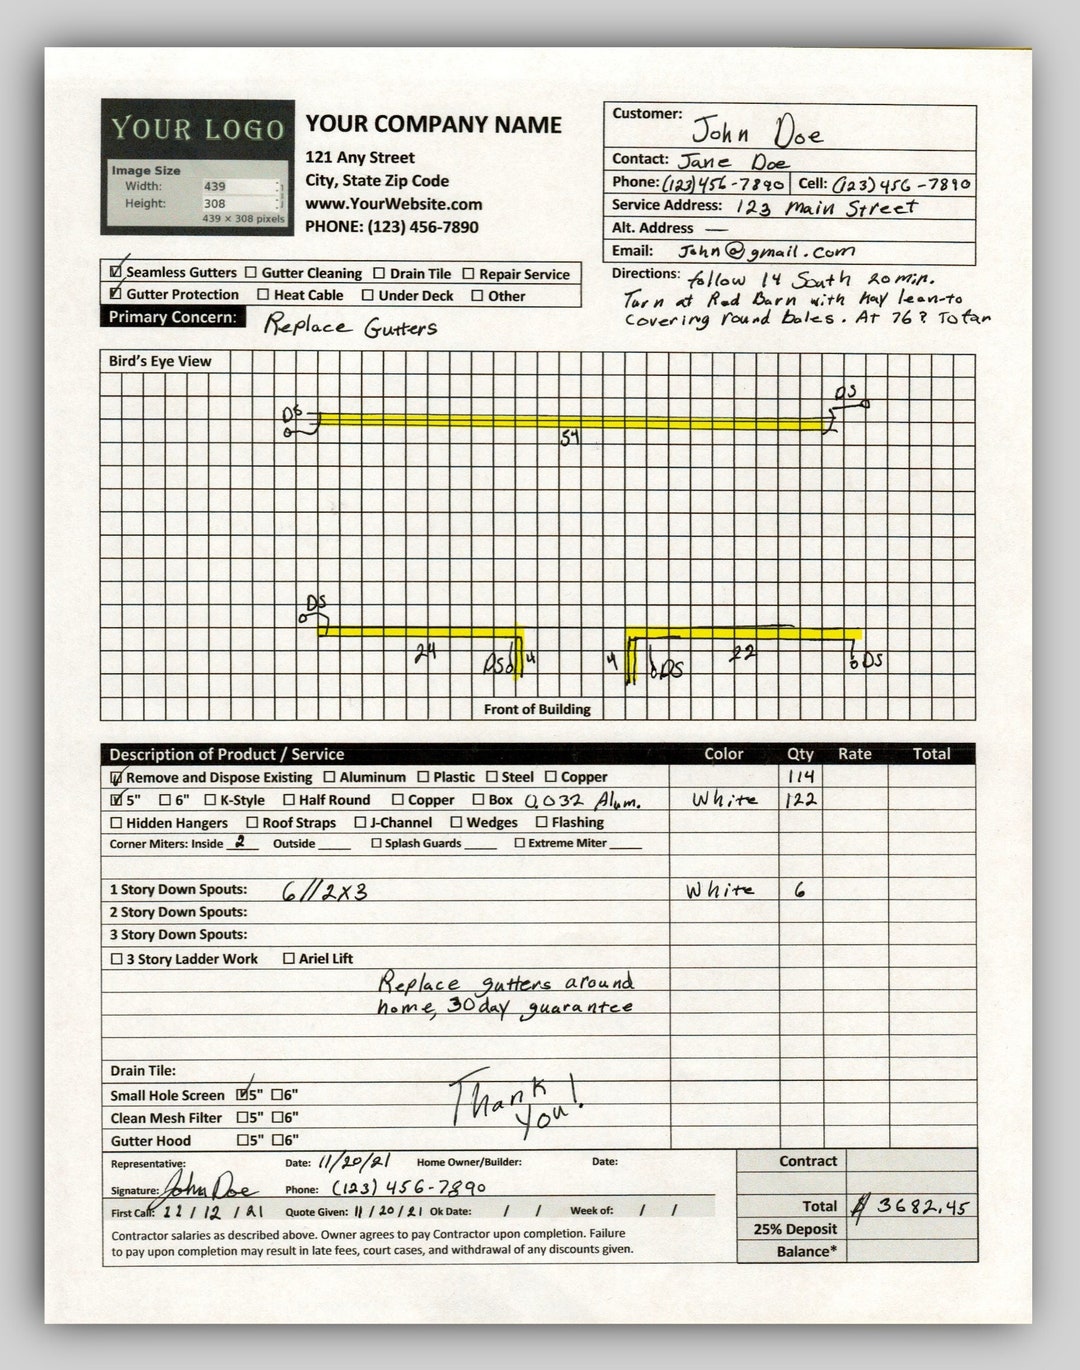 YOUR LOGO
Image Size
Width: 439
Height: 308
439 × 308 pixels
YOUR COMPANY NAME
121 Any Street
City, State Zip Code
www.YourWebsite.com
PHONE: (123) 456-7890
Customer: John Doe
Contact: Jane Doe
Phone: (123) 456-7890 Cell: (123) 456-7890
Service Address: 123 Main Street
Alt. Address —
Email: John@gmail.com
Directions: follow 14 South 20 min.
Turn at Red Barn with hay lean-to
covering round bales. At 76
☑ Seamless Gutters ☐ Gutter Cleaning ☐ Drain Tile ☐ Repair Service
☑ Gutter Protection ☐ Heat Cable ☐ Under Deck ☐ Other
Primary Concern: Replace Gutters
Bird's Eye View
DS DS
54
DS
24 DS 4 4 DS 22 DS
Front of Building
Description of Product / Service Color Qty Rate Total
☑ Remove and Dispose Existing ☐ Aluminum ☐ Plastic ☐ Steel ☐ Copper 114
☑ 5" ☐ 6" ☐ K-Style ☐ Half Round ☐ Copper ☐ Box 0.032 Alum. White 122
☐ Hidden Hangers ☐ Roof Straps ☐ J-Channel ☐ Wedges ☐ Flashing
Corner Miters: Inside 2 Outside ____ ☐ Splash Guards ____ ☐ Extreme Miter ____
1 Story Down Spouts: 6//2x3 White 6
2 Story Down Spouts:
3 Story Down Spouts:
☐ 3 Story Ladder Work ☐ Ariel Lift
Replace gutters around
home, 30 day guarantee
Drain Tile:
Small Hole Screen ☑ 5" ☐ 6"
Clean Mesh Filter ☐ 5" ☐ 6"
Gutter Hood ☐ 5" ☐ 6"
Thank
You!
Representative: Date: 11/20/21 Home Owner/Builder: Date:
Signature: John Doe Phone: (123) 456-7890
First Call: 11/12/21 Quote Given: 11/20/21 Ok Date: / / Week of: / /
Contractor salaries as described above. Owner agrees to pay Contractor upon completion. Failure
to pay upon completion may result in late fees, court cases, and withdrawal of any discounts given.
Contract
Total $ 3682.45
25% Deposit
Balance*